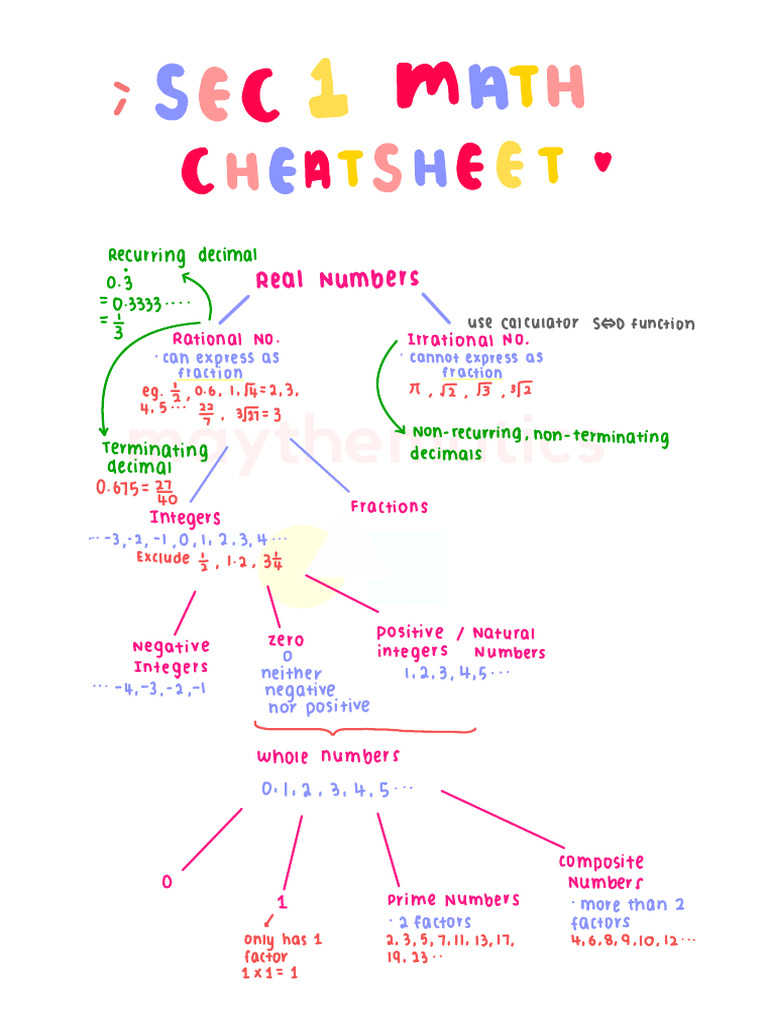 SEC 1 MATH
CHEATSHEET
Recurring decimal
0.3̇
= 0.3333····
= 1/3
Real Numbers
use calculator S⇔D function
Rational No.
· can express as
fraction
eg. 1/2, 0.6, 1, √4=2, 3,
4, 5··· 22/7, ³√27=3
Irrational No.
· cannot express as
fraction
π, √2, √3, ³√2
Non-recurring, non-terminating
decimals
maythematics
Terminating
decimal
0.675 = 27/40
Integers
··· -3, -2, -1, 0, 1, 2, 3, 4 ···
Exclude 1/2, 1.2, 3 1/4
Fractions
Negative
Integers
··· -4, -3, -2, -1
zero
0
neither
negative
nor positive
positive / Natural
integers Numbers
1, 2, 3, 4, 5 ···
whole numbers
0, 1, 2, 3, 4, 5 ···
0
1
only has 1
factor
1 x 1 = 1
Prime Numbers
· 2 factors
2, 3, 5, 7, 11, 13, 17,
19, 23 ··
composite
Numbers
· more than 2
factors
4, 6, 8, 9, 10, 12 ···